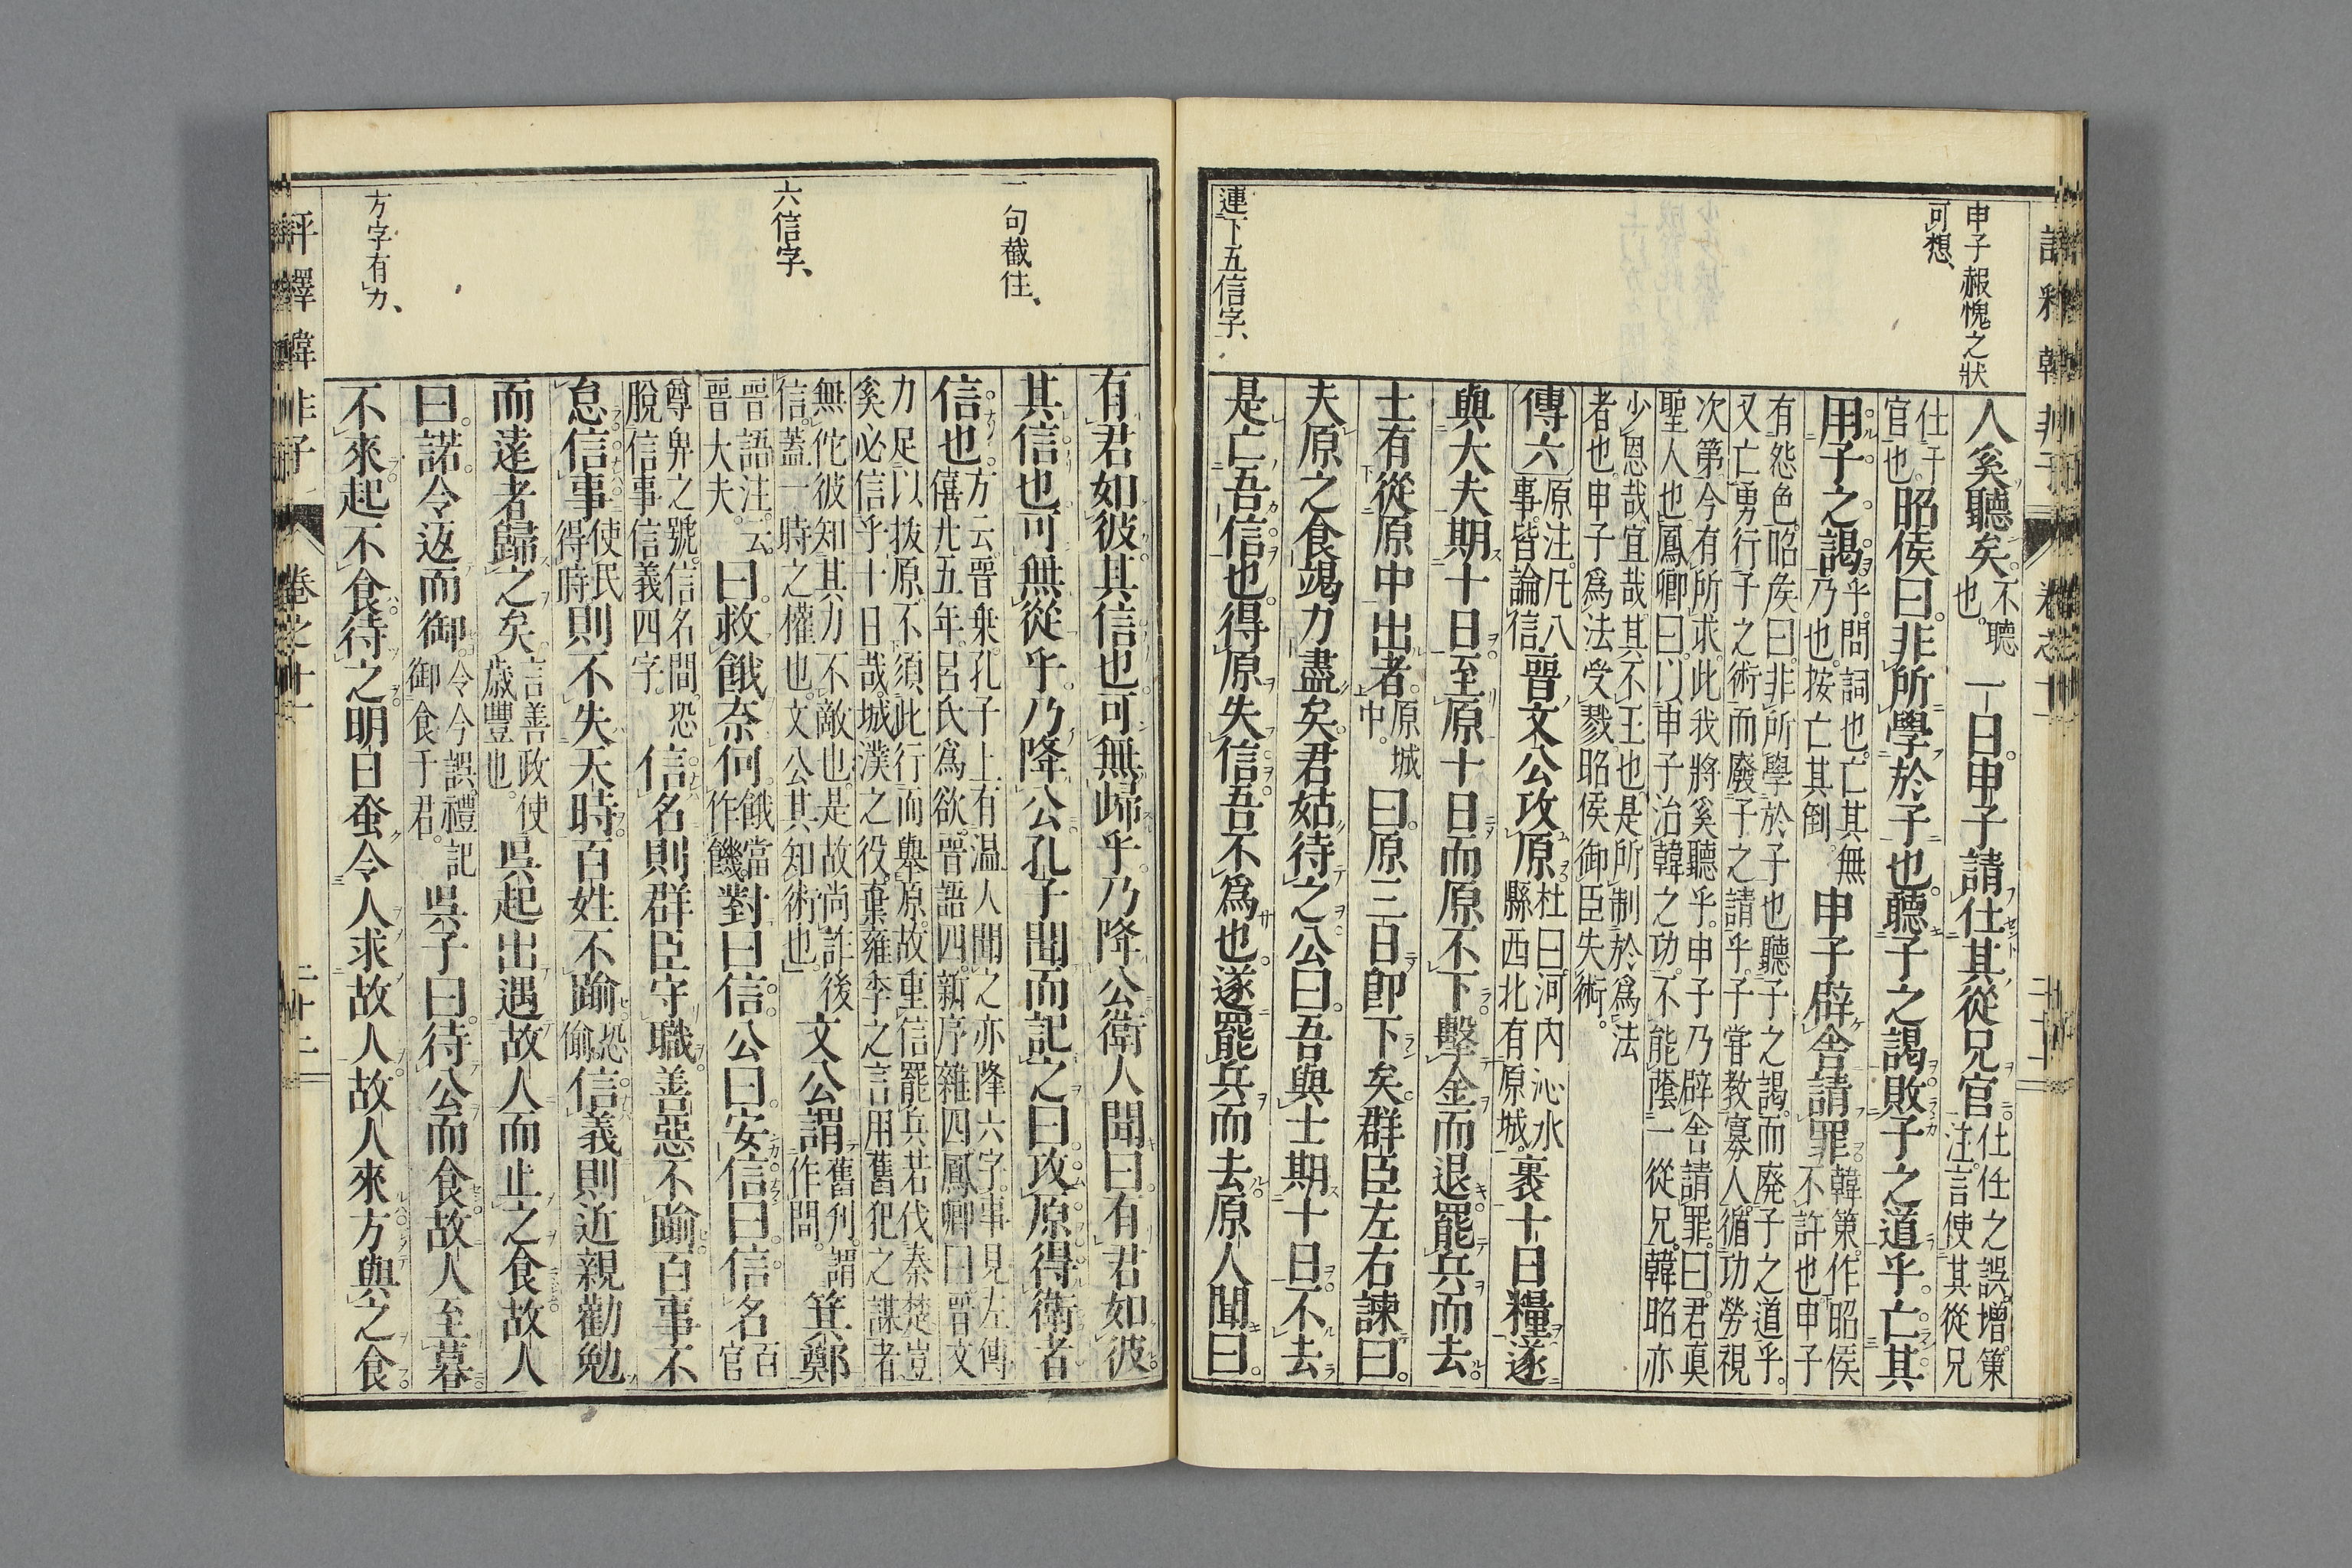 申子赧愧之狀
可想、
連下五信字、
人奚聽矣。不聽也。一曰。申子請仕其從兄官仕任之誤。增。策注。言使其從兄
仕于官也。昭侯曰。非所學於子也。聽子之謁敗子之道乎。亡其
用子之謁。乎。問詞也。亡其無乃也。按亡其倒。申子辟舍請罪。韓策。作昭侯不許也申子
有怨色。昭侯曰。非所學於子也聽子之謁。而廃子之道乎。
又亡勇行子之術而廢子之請乎。子甞教寡人。循功勞視
次第。今有所求。此我將奚聽乎。申子乃辟舍請罪。曰。君眞
聖人也。鳳卿曰。以申子治韓之功。不能蔭一從兄。韓昭亦
少恩哉。宜哉其不王也。是所制於爲法
者也。申子爲法受戮。昭侯御臣失術。
傳六原注。凡八事。皆論信。晉文公攻原杜曰。河內沁水縣西北有原城。裹十日糧遂
與大夫期十日至原十日而原不下擊金而退罷兵而去
士有從原中出者。原城中。曰。原三日卽下矣。群臣左右諫曰。
夫原之食竭力盡矣。君姑待之公曰。吾與士期十日。不去
是亡吾信也。得原失信。吾不爲也遂罷兵而去原人聞曰。
一句截住、
六信字、
方字有力、
有君如彼其信也可無歸乎。乃降公衛人聞曰。有君如彼
其信也可無從乎。乃降公孔子聞而記之曰。攻原得衛者
信也。方云。晉乗。孔子上有温人聞之亦降六字。事見左傳僖廿五年。呂氏爲欲。晉語四。新序雜四鳳卿曰。晉文
力足以抜原。不須此行而舉原。故重信罷兵若伐秦楚豈
奚必信乎十日哉。城濮之役。棄雍季之言用舊犯之謀者
無佗彼知其力不敵也。是故尚詐後信。蓋一時之權也。文公其知術也。文公謂舊刋。謂作問。箕鄭
晉語注。云。晉大夫。曰。救餓奈何。餓當作饑。對曰信。公曰。安信曰。信名百官
尊卑之號。信名問。恐脫信事信義四字。信名則群臣守職。善惡不踰百事不
怠信事使民得時則不失天時。百姓不踰恐偷。信義則近親勸勉
而遠者歸之矣。言善政使歳豐也。吳起出遇故人而止之食故人
曰。諾。今返而御。令今誤。禮記御食于君。吳子曰。待公而食故人至暮
不來起不食待之明日蚤令人求故人故人來方與之食